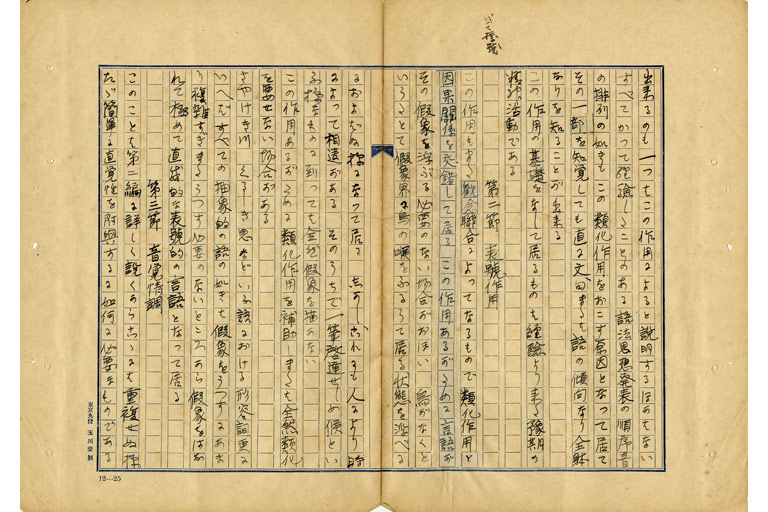 出来るのも一つもこの作用によると説明するほかもない
すべてかつて経験したことのある語法思想発表の順序音
の排列の如きもこの類化作用をおこす原因となつて居て
その一部を知覚しても直に文句または語の傾向なり全躰
なりを知ることが出来る
この作用が基礎をなして居るものも経験より来る豫期の
精神活動である
第二節 表號作用
この作用もまた観念聯合によつてなるもので類化作用と
因果関係を交錯して居る この作用あるがために言語が
その假象を浮ぶる必要のない場合がおほい 鳥がなくと
いつたとて假象界に鳥の
居る状態を浮べる
におよばぬ様になつて居る
これも人により時
によつて相違がある そのうちで一筆啓上せしめ候とい
ふ様なものに到つても全然假象を描かない
この作用あるがために類化作用を補助しまた全然類化
を要せない場合がある
さやけき川 くるしき思などいふ語における形容詞更に
いへばすべての抽象的の語の如きも假象をうつすにあま
り複雑すぎまたうつす必要のないところから假象をはな
れて極めて直截的な表號的の言語となつて居る
第三節 音覚情調
このことも第二編に詳しく説くからこゝには重複せぬ様
たゞ簡単に直覚性を附與するに如何に必要なもの
である
東京九段 玉川堂製
12—25